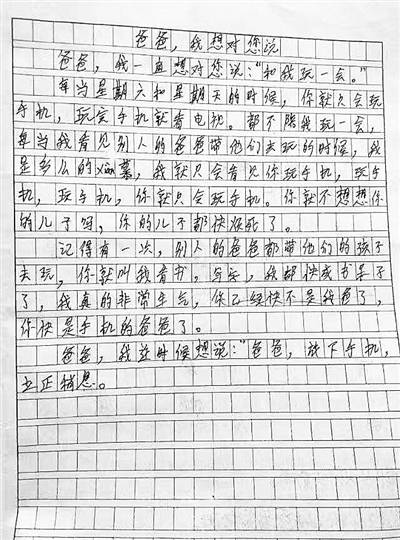 爸爸，我想对您说
爸爸，我一直想对您说："和我玩一会。"
每当星期六和星期天的时候，你就只会玩
手机，玩完手机就看电视。都不陪我玩一会，
每当我看见别人的爸爸带他们去玩的时候，我
是多么的xiàn慕，我就只会看见你玩手机，玩手
机，玩手机，你就只会玩手机。你就不想想你
的儿子吗，你的儿子都快没死了。
记得有一次，别人的爸爸都带他们的孩子
去玩，你就叫我看书，写字，我都快成书呆子
了，我真的非常生气，你已经快不是我爸了，
你快是手机的爸爸了。
爸爸，我这时候想说："爸爸，放下手机，
立正稍息。